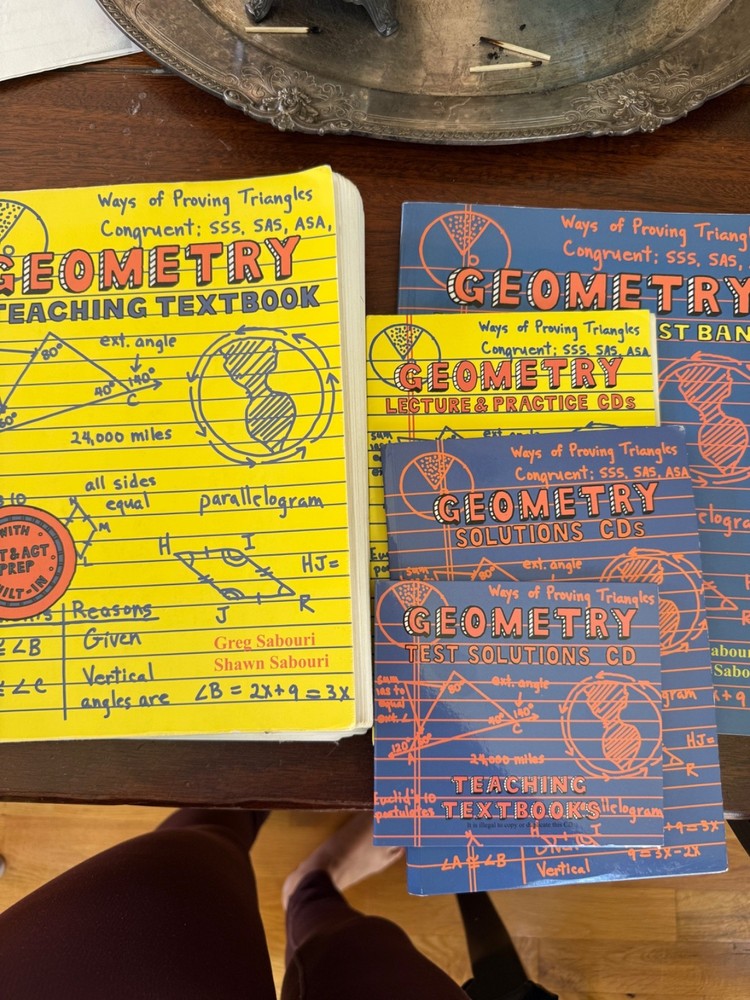 Ways of Proving Triangles
Congruent; SSS, SAS, ASA,
GEOMETRY
TEACHING TEXTBOOK
80°
ext. angle
40°
140°
C
60°
24,000 miles
all sides
equal
M
parallelogram
WITH
PREP
H
I
HJ=
J
R
Reasons
≅ ∠B
Given
≅ ∠C
Vertical
angles are
∠B = 2x+9 = 3x
Greg Sabouri
Shawn Sabouri
Ways of Proving
Congruent; SSS, SAS,
GEOMETRY
Ways of Proving Triangles
Congruent; SSS, SAS, ASA
GEOMETRY
LECTURE & PRACTICE CDs
ext. angle
Ways of Proving Triangles
Congruent; SSS, SAS, ASA
GEOMETRY
SOLUTIONS CDs
ext. angle
80°
Ways of Proving Triangles
GEOMETRY
TEST SOLUTIONS CD
sum
has to
equal
ext. ∠
80°
ext. angle
40°
140°
C
120°
60°
A
24,000 miles
TEACHING
TEXTBOOKS
Euclid's 10
postulates
It is illegal to copy or duplicate this CD
HJ=
R
+9=3x
∠A ≅ ∠B
9=3x-2x
Vertical